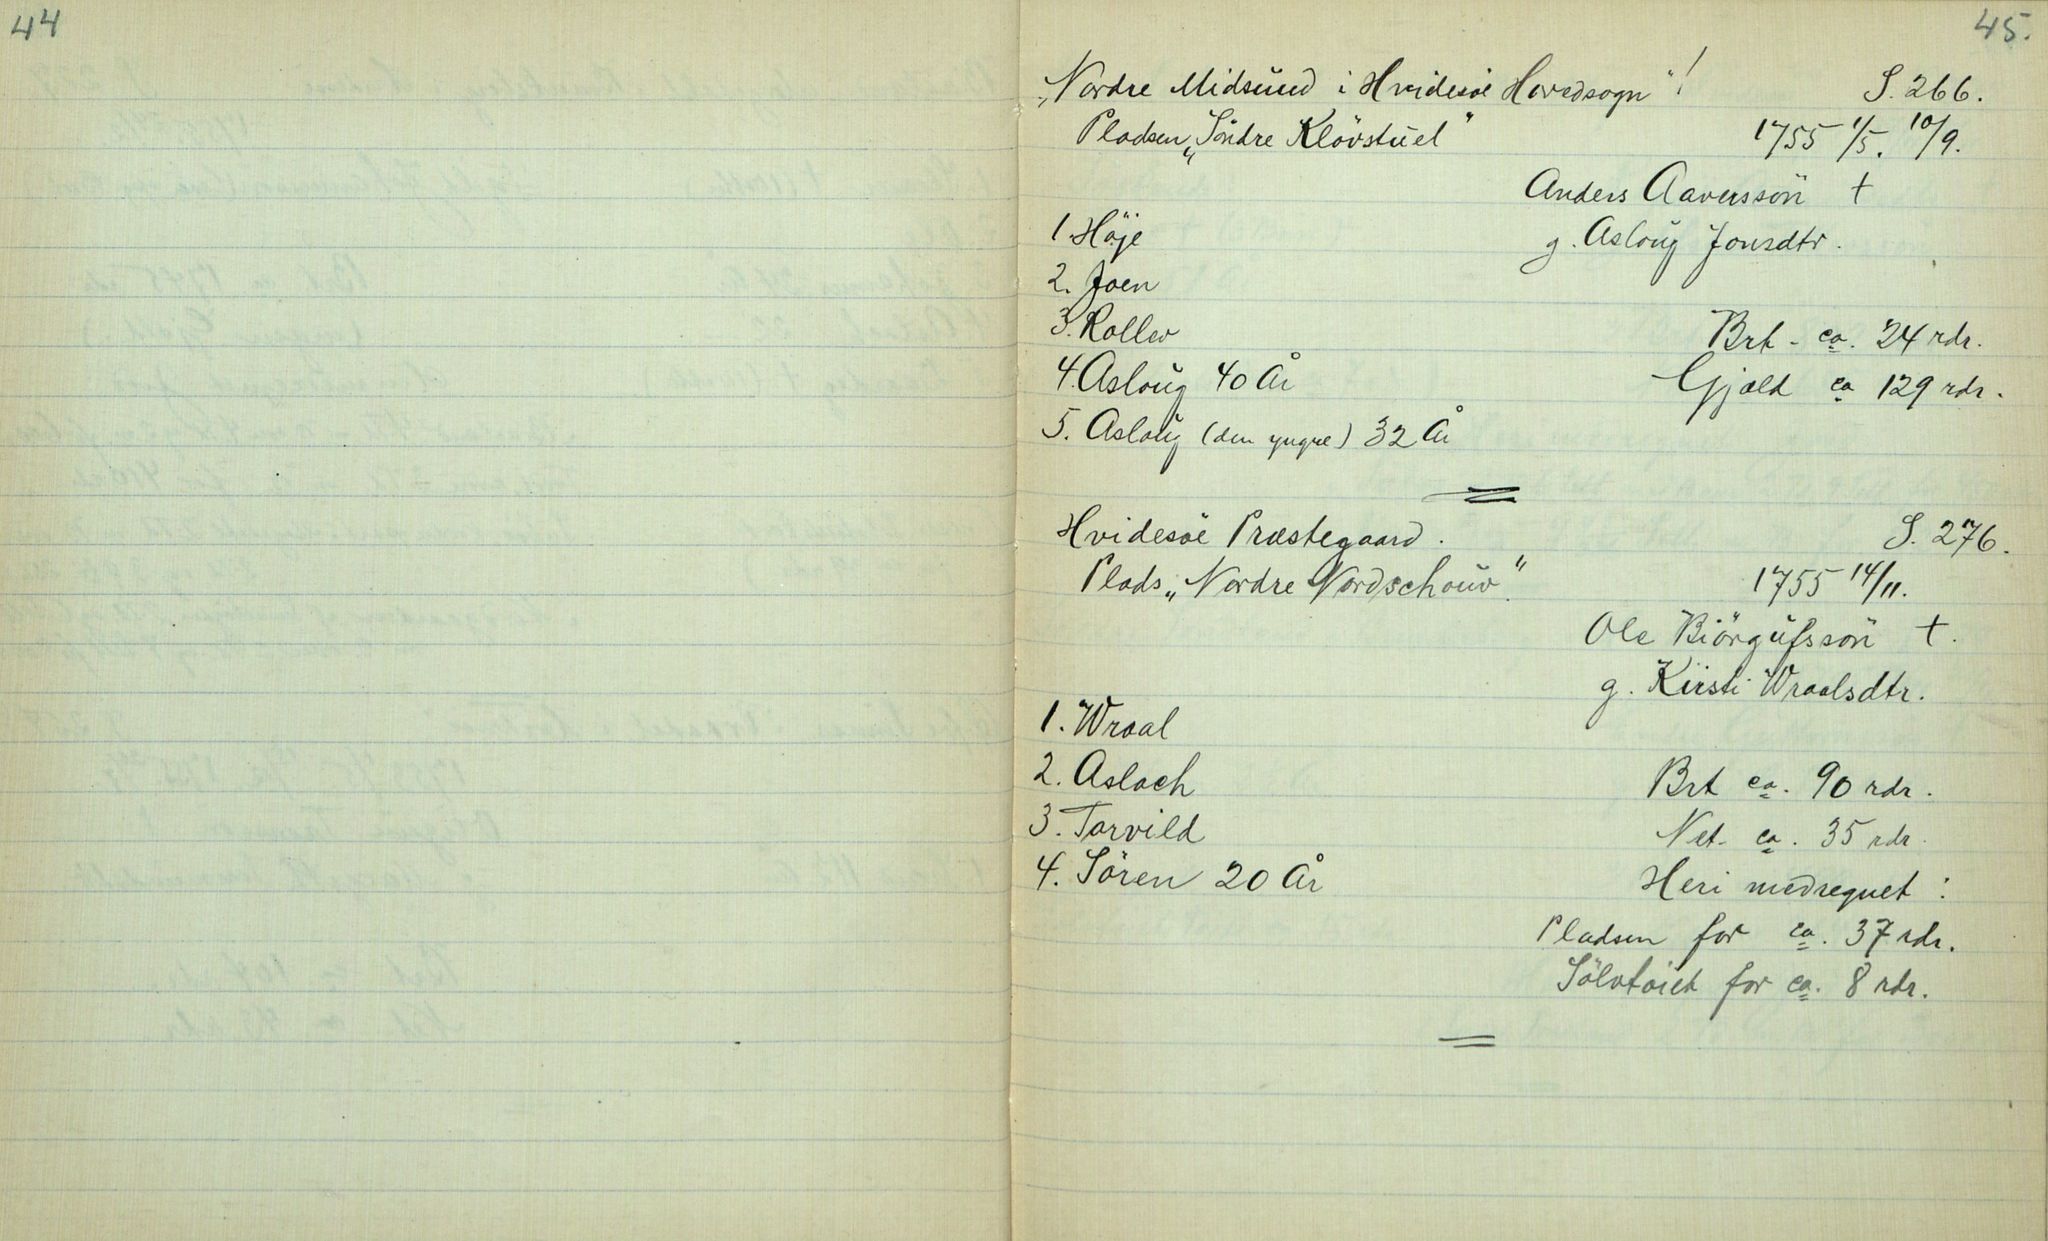 44
45.
„Nordre Midsund i Hvidesöe Hovedsogn"!
S. 266.
Pladsen „Söndre Klövstuel"
1755 1/5. 10/9.
Anders Aaversson †
g. Asloug Jonsdtr.
1. Höje
2. Joen
3. Rollev
Brt. ca. 24 rdr.
4. Asloug 40 År
Gjæld ca 129 rdr.
5. Asloug (den yngre) 32 År
Hvidesöe Præstegaard.
S. 276.
Plads „Nordre Nordschouv".
1755 14/11.
Ole Biörgufssön †.
g. Kirsti Wraalsdtr.
1. Wraal
2. Aslach
Brt ca. 90 rdr.
3. Torvild
Net. ca. 35 rdr.
4. Sören 20 År
Heri medregnet:
Pladsen for ca. 37 rdr.
Sölvtöiet for ca. 8 rdr.